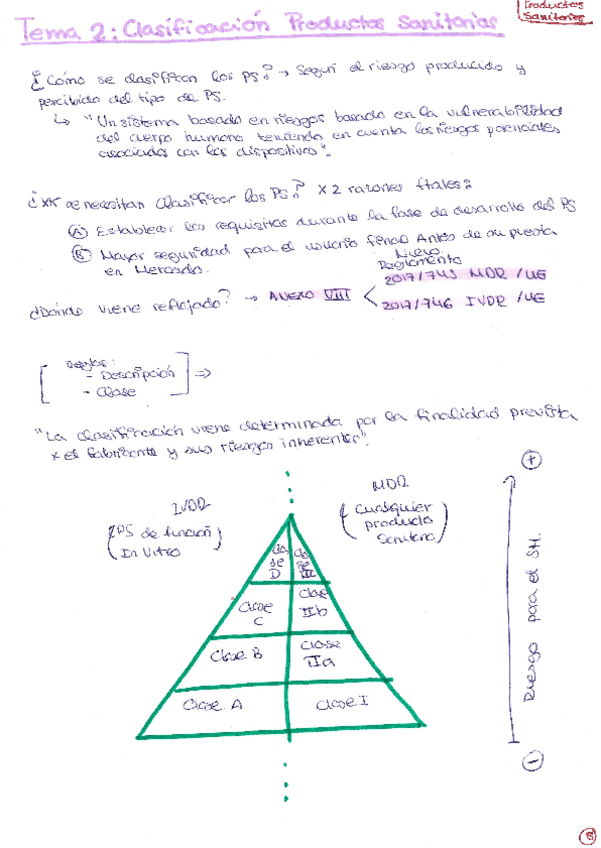 Productos
Sanitarios
Tema 2: Clasificación Productos Sanitarios
¿Cómo se clasifican los PS? → Según el riesgo producido y
percibido del tipo de PS.
↳ "Un sistema basado en riesgos basado en la vulnerabilidad
del cuerpo humano teniendo en cuenta los riesgos potenciales
asociados con los dispositivos".
¿XK se necesitan clasificar los PS? X 2 razones ftales:
(A) Establecer los requisitos durante la fase de desarrollo del PS
(B) Mayor seguridad para el usuario final Antes de su puesta
en Mercado.
Nuevo
Reglamento
¿Dónde viene reflejado? → ANEXO VIII < 2017/745 MDR /UE
2017/746 IVDR /UE
Reglas:
- Descripción
- Clase
⇒
"La clasificación viene determinada por la finalidad prevista
x el fabricante y sus riesgos inherentes".
IVDR
(PS de función
In Vitro)
MDR
(Cualquier
producto
Sanitario)
Clase D
Clase III
Clase C
Clase IIb
Clase B
Clase IIa
Clase A
Clase I
+
Riesgo para el SH.
-